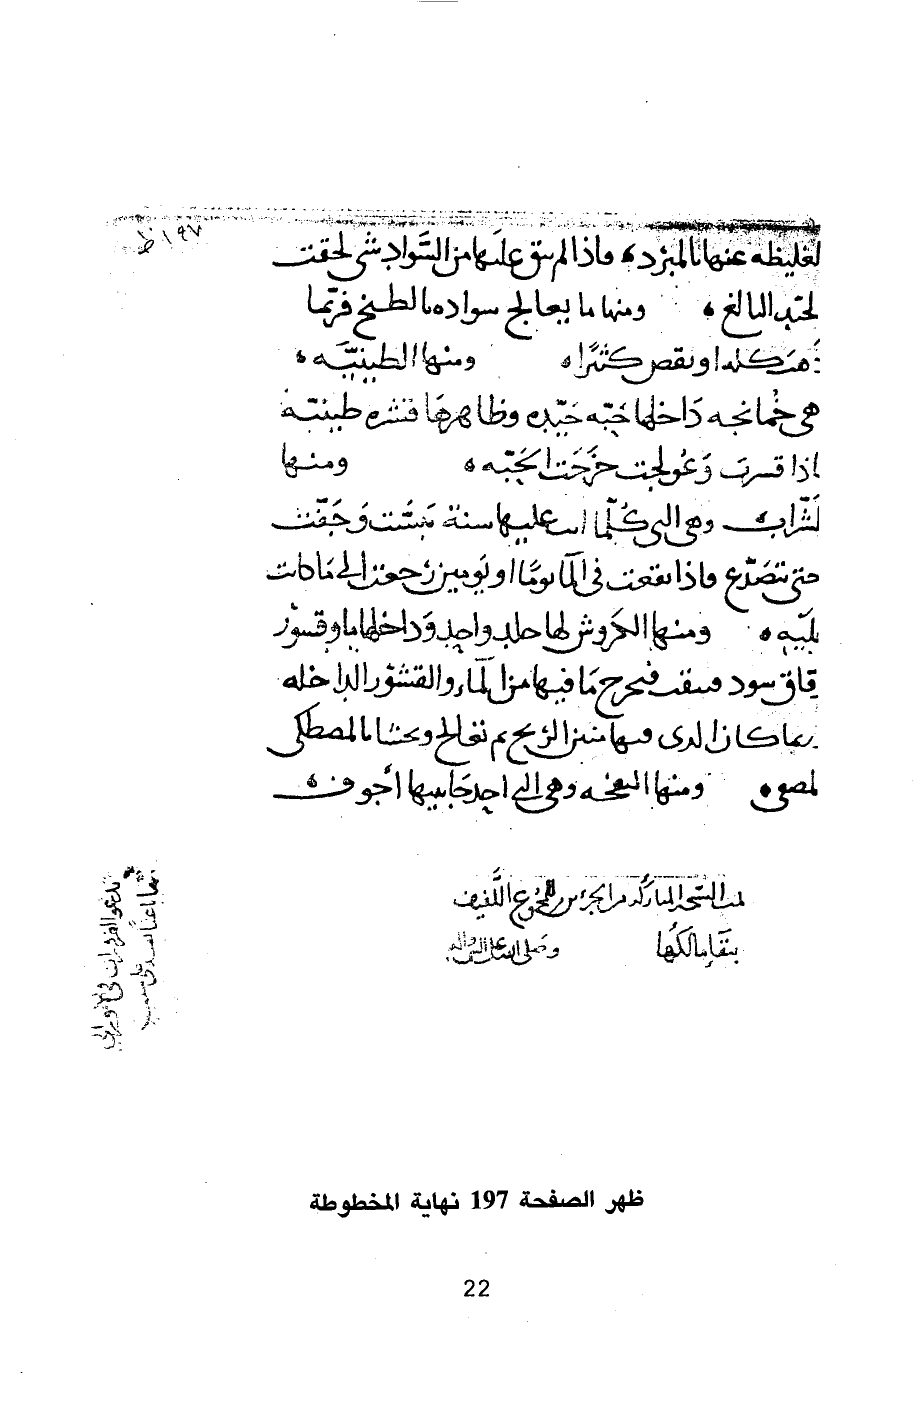 ١٩٧ ظ
لغليظه عنها بالمبرد، فاذا لم يبق عليها من السَّواد شى لحقت
البالغ، ومنها ما يعالج سواده بالطبخ فربّما
ذهبَ كله او نقص كثيرًا، ومنها الطينيّه،
هى خمانجه داخلها حَبّه جَيّده وظاهرها قشره طينيّه
اذا قشرت وَعُولجت خرَجَت الحَبّه، ومنها
لتّراب، وهى التى كُلّما اتت عليها سنة يبسَت وَجَفّت
حتى تتصَدّع فاذا نقعت فى المآ يومًا او يومين رجعت الى ما كانت
عليه، ومنها الكروش لها جلد واحد وَداخلها ما وقشور
رقاق سود فيخرج مَا فيها من المآء والقشور الداخله
ربما كان الذى فيها منتن الريح ثم تعالج وتحشا بالمصطكى
لمصفى، ومنها وهى التى احد جانبيها أجوف،
تمت النسخة المباركة من المجموع اللّفيف
بِبَقَآءِ مالكها وصَلى الله على
ظهر الصفحة 197 نهاية المخطوطة
22